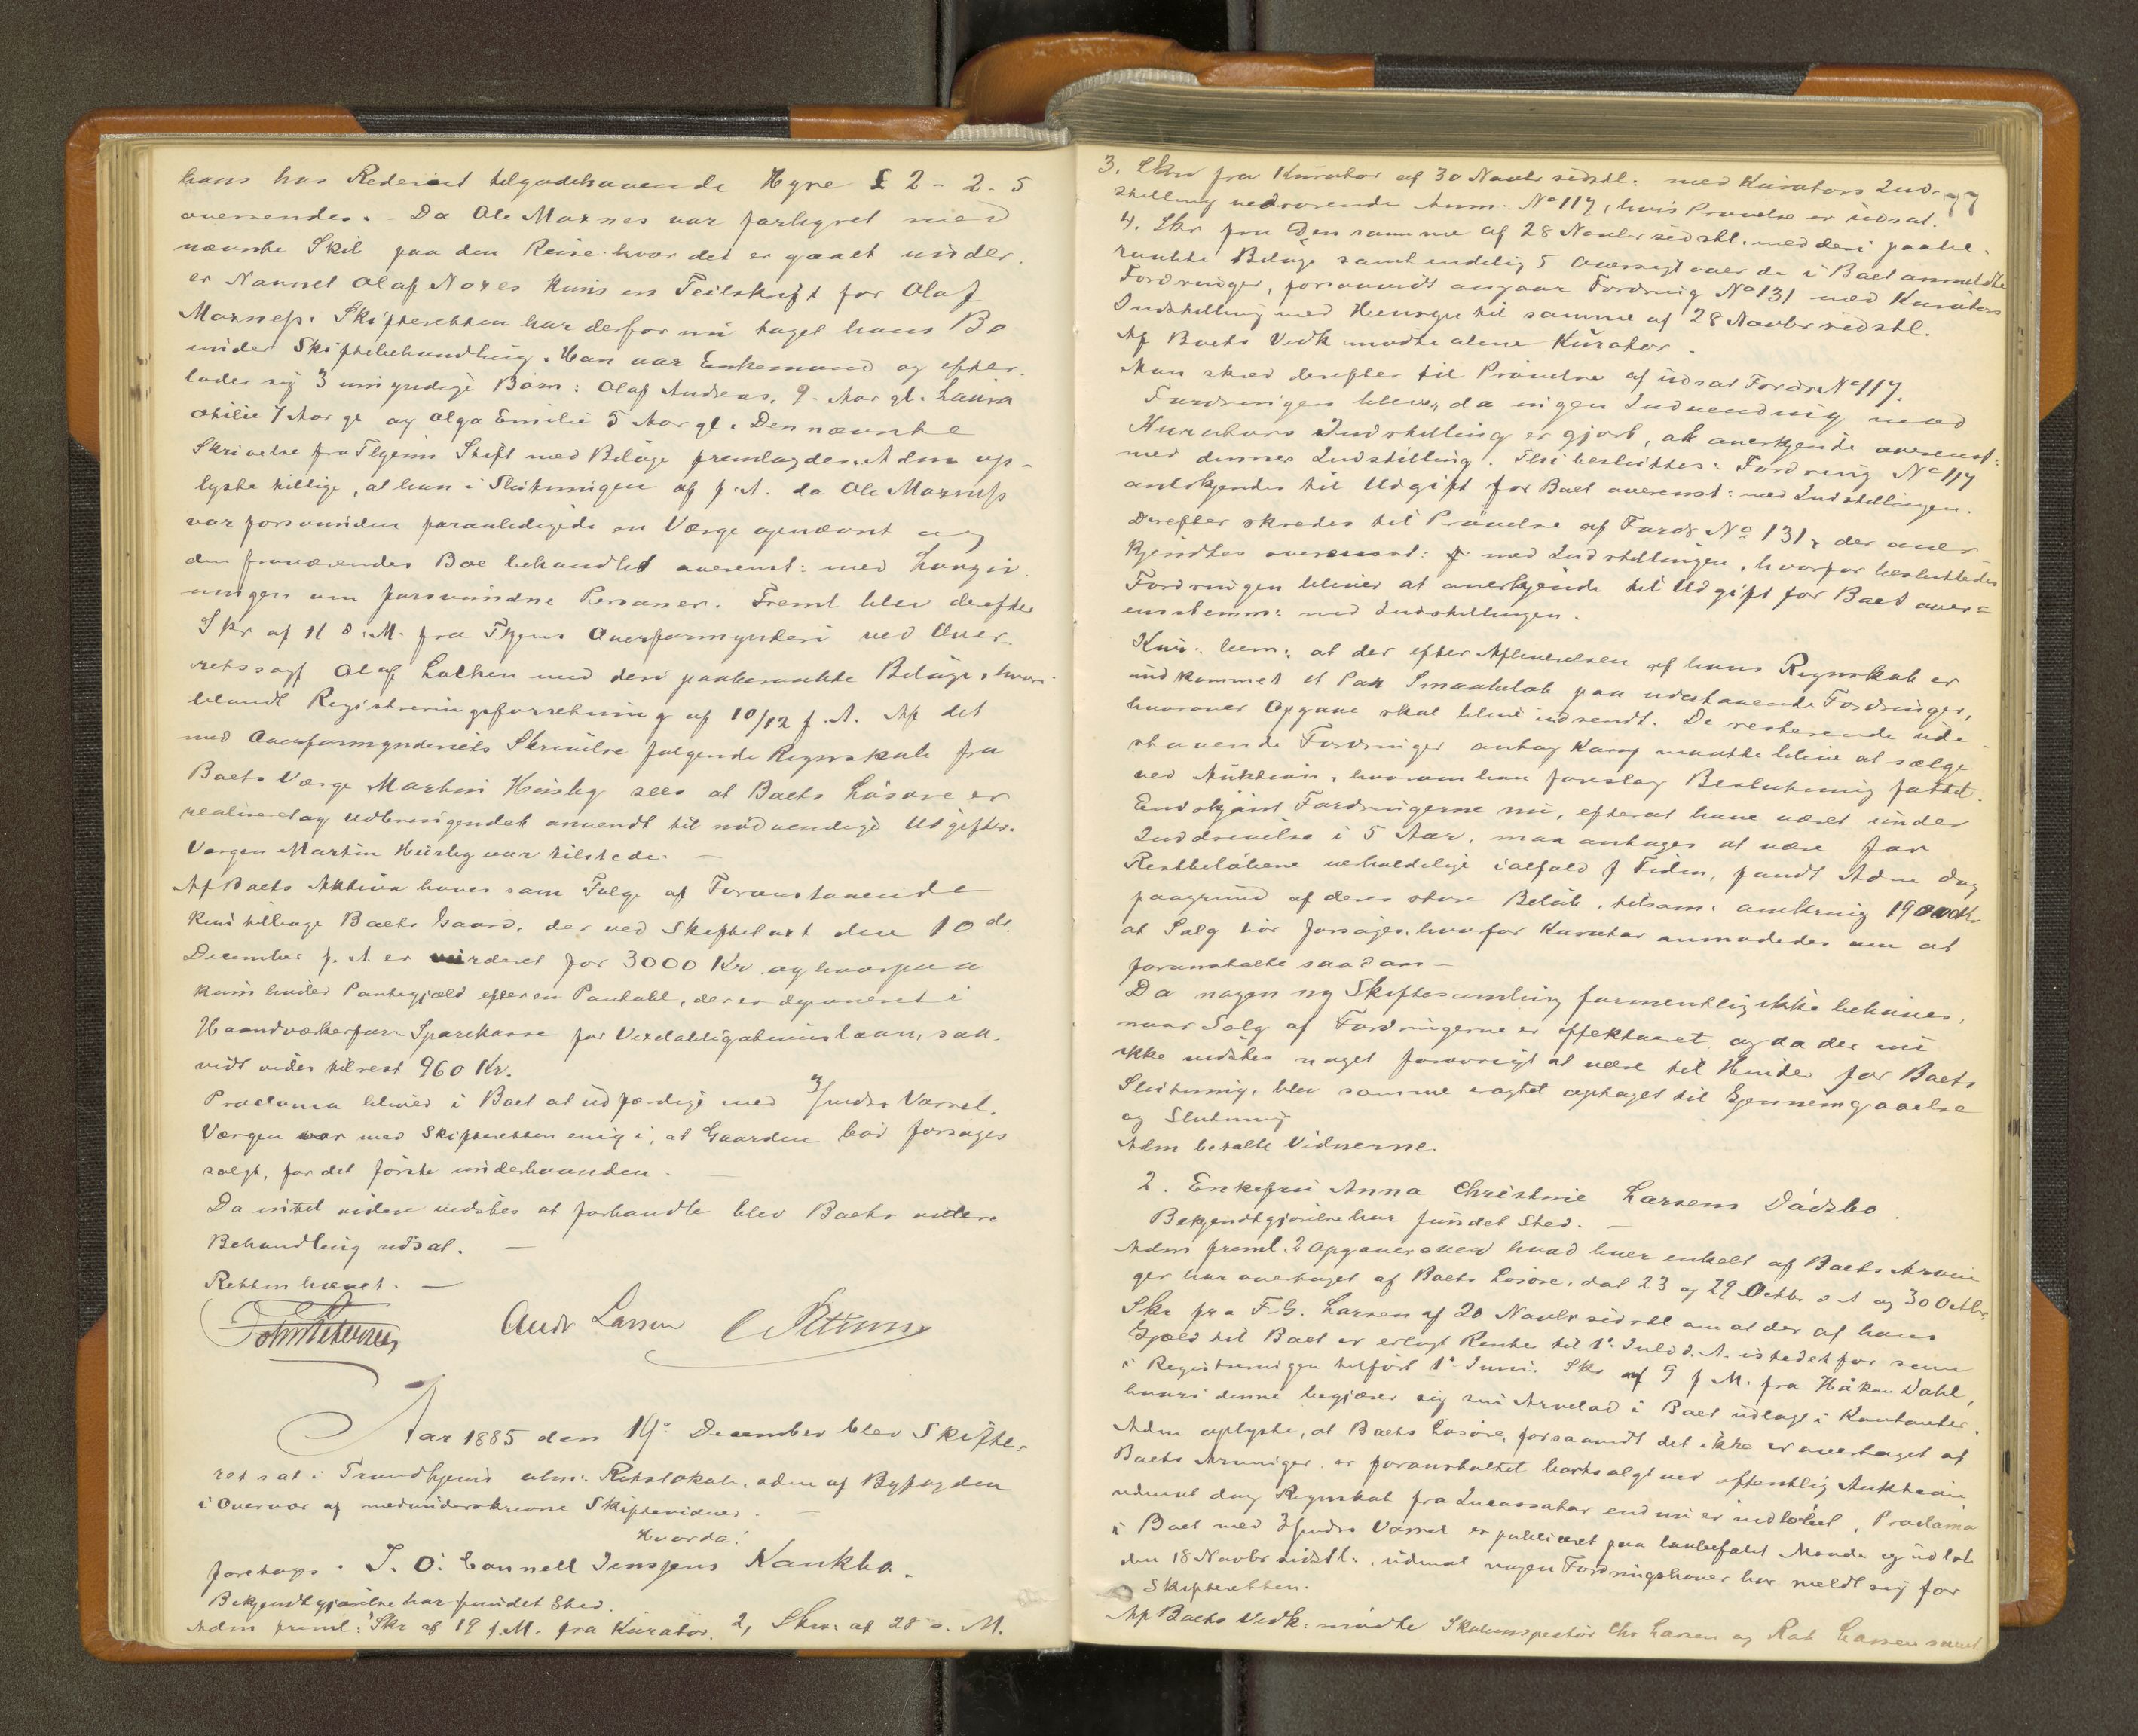 hans hos Rederiet tilgodehavende Hyre £ 2 - 2. 5
oversendes. - Da Ole Moxnes var forhyret med
nævnte Skib paa den Reise hvor det er gaaet under.
er Navnet Olaf Noxes kuns en Feilskrift for Olaf
Moxness. Skifteretten har derfor nu taget hans Bo
under Skiftebehandling. Han var Enkemand og efter-
lader sig 3 umyndige Börn: Olaf Andreas, 9 Aar gl. Laura
Otilie 7 Aar gl og Olga Emilie 5 Aar gl. Den nævnte
Skrivelse fra Thjems Stift med Bilage fremlagdes. Adm op-
lyste tillige, at han i Slutningen af f. A. da Ole Moxness
var forsvunden foranledigede en Værge opnævnt og
den fraværendes Boe behandlet overenst: med Lovgiv-
ningen om forsvundne Personer. Freml blev derefter
Skr af 11 d. M. fra Thjems Overformynderi ved Over-
retssagf Olaf Lothen med deri paaberaabte Bilage, hvori-
blandt Registreringsforretning af 10/12 f. A. Af det
med Overformynderiets Skrivelse følgende Regnskab fra
Boets Værge Martin Husby sees at Boets Lösöre er
realiseret og Udbringendet anvendt til nödvendige Udgifter.
Værgen Martin Husby var tilstede. —
Af Boets Aktiva haves som Følge af Foranstaaende
kun tilbage Boets Gaard, der ved Skiftetaxt den 10de
December f. A. er vurderet for 3000 Kr. og hvorpaa
kuns hviler Pantegjæld efter en Pantobl, der er deponeret i
Haandværkerforn Sparekasse for Vexelobligationslaan, saa-
vidt vides tilrest 960 Kr.
Proclama bliver i Boet at udfærdige med 3/mdrs Varsel.
Værgen var med Skifteretten enig i, at Gaarden bör forsöges
solgt, for det förste underhaanden. —
Da intet videre vidstes at forhandle blev Boets videre
Behandling udsat. —
Retten hævet. —
Andr Larsen
Aar 1885 den 19de December blev Skifte-
ret sat i Trondhjems alm: Retslokale, adm af Byfogden
i Overvær af medunderskrevne Skiftevidner. —
Hvorda:
foretoges 1. J. O. Connell Jenssens Konkbo.
Bekjendtgjörelse har fundet Sted.
Adm freml: 1 Skr af 19 f. M. fra Kurator. 2, Skr: af 28 s. M.
77
3. Skr fra Kurator af 30 Novbr sidstl: med Kurators Ind-
stilling vedrörende Anm: No 117, hvis Prövelse er udsat.
4. Skr fra Den samme af 28 Novbr sidstl. med deri paabe-
raabte Bilage samt endelig 5 Oversigt over de i Boet anmeldte
Fordringer, forsaavidt angaar Fordring No 131 med Kurators
Indstilling med Hensyn til samme af 28 Novbr sidstl.
Af Boets Vedk mödte alene Kurator.
Man skred derefter til Prövelse af udsat Fordr No 117.
Fordringen bliver, da ingen Indvending mod
Kurators Indstilling er gjort, at anerkjende overenst:
med dennes Indstilling. Thi besluttes: Fordring No 117
anerkjendes til Udgift for Boet overenst: med Indstillingen.
Derefter skredes til Prövelse af Fordr No 131, der aner-
kjendtes overenst: med Indstillingen, hvorfor besluttedes
Fordringen bliver at anerkjende til Udgift for Boet over=
ensstemm: med Indstillingen.
Kur: bem: at der efter Afleverelsen af hans Regnskab er
indkommet et Par Smaabelöb paa udestaaende Fordringer,
hvorover Opgave skal blive indsendt. De resterende ude-
staaende Fordringer antog Komp maatte blive at sælge
ved Auktion, hvorom han foreslog Beslutning fattet.
Endskjönt Fordringerne nu, efterat have været under
Inddrivelse i 5 Aar, maa antages at være for
Restbelöbene uerholdelige ialfald f Tiden, fandt Adm dog
paagrund af deres store Belöb, tilsam: omkring 19000 Kr
at Salg bör forsöges, hvorfor Kurator anmodedes om at
foranstalte saadan —
Da nogen ny Skiftesamling formentlig ikke behöves,
naar Salg af Fordringerne er effektueret, og da der nu
ikke vidstes noget forövrigt at være til Hinder for Boets
Slutning, blev samme eragtet optaget til Gjennemgaaelse
og Slutning
Adm betalte Vidnerne.
2. Enkefru Anna Christine Larsens Dödsbo.
Bekjendtgjörelse har fundet Sted. —
Adm freml. 2 Opgaver over hvad hver enkelt af Boets Arvin-
ger har overtaget af Boets Lösöre, dat 23 og 29 Octbr d A og 30 Octbr
Skr fra F. G. Larsen af 20 Novbr sidstl om at der af hans
Gjæld til Boet er erlagt Renter til 1ste Juli d. A. istedetfor som
i Registreringen tilfört 1ste Juni. Skr af 9 f M. fra Håkon Dahl,
hvori denne begjærer sig sin Arvelod i Boet udlagt i Kontanter.
Adm oplyste, at Boets Lösöre, forsaavidt det ikke er overtaget af
Boets Arvinger er foranstaltet bortsolgt ved offentlig Auktion,
uden at dog Regnskab fra Incassator endnu er indlöbet. Proclama
i Boet med 3/mdrs Varsel er publiceret paa lovbefalet Maade og udlöb
den 18 Novbr sidstl:, uden at nogen Fordringshaver har meldt sig for
Skifteretten.
Af Boets Vedk: mödte Skoleinspektör Chr Larsen og Rob Larsen samt